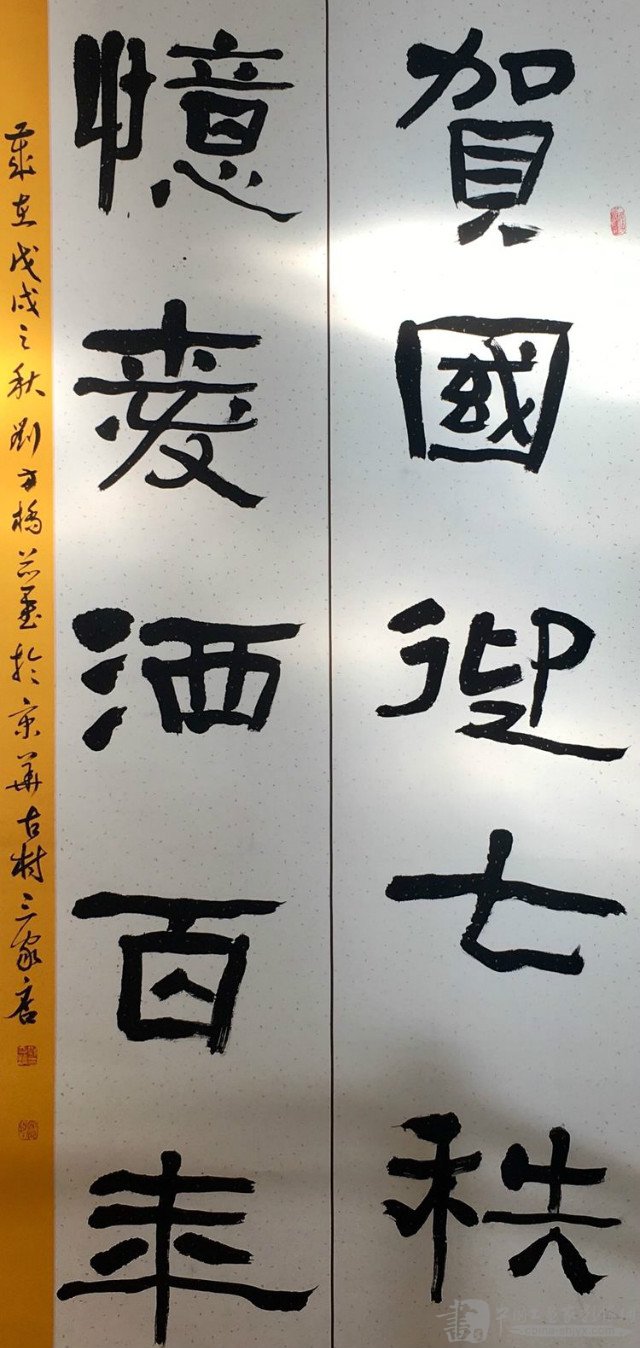 賀國迎七秩
憶愛洒百年
歲在戊戌之秋劉方橋芯墨於京華古村三家店